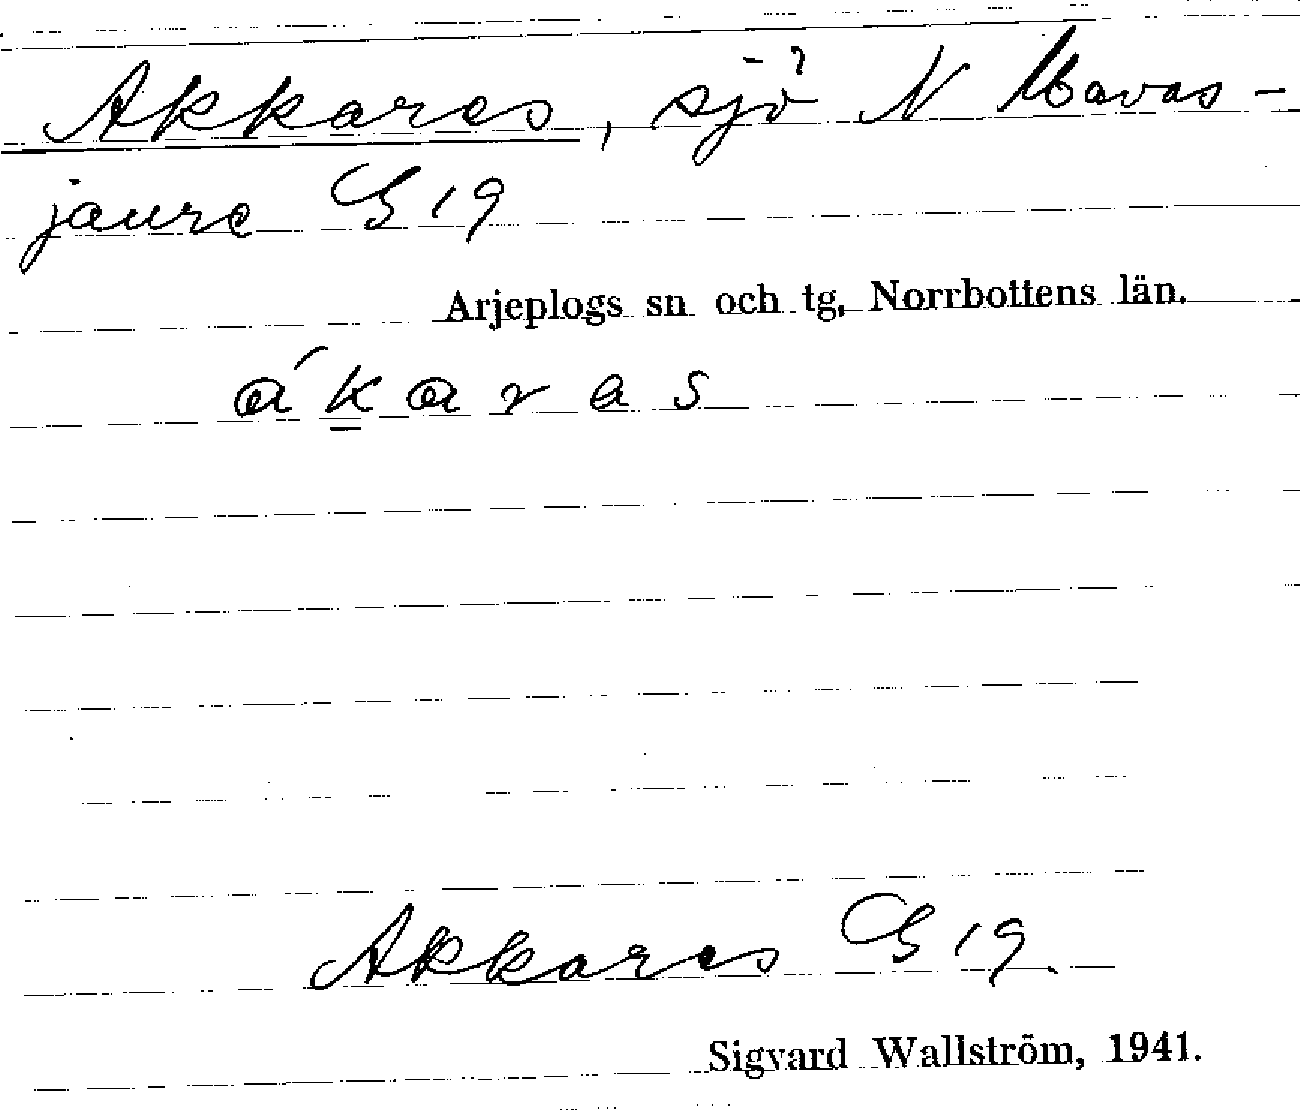 Akkares, sjö N Mavas-
jaure G 19
Arjeplogs sn och tg, Norrbottens län.
ák̲ares
Akkares G 19.
Sigvard Wallström, 1941.